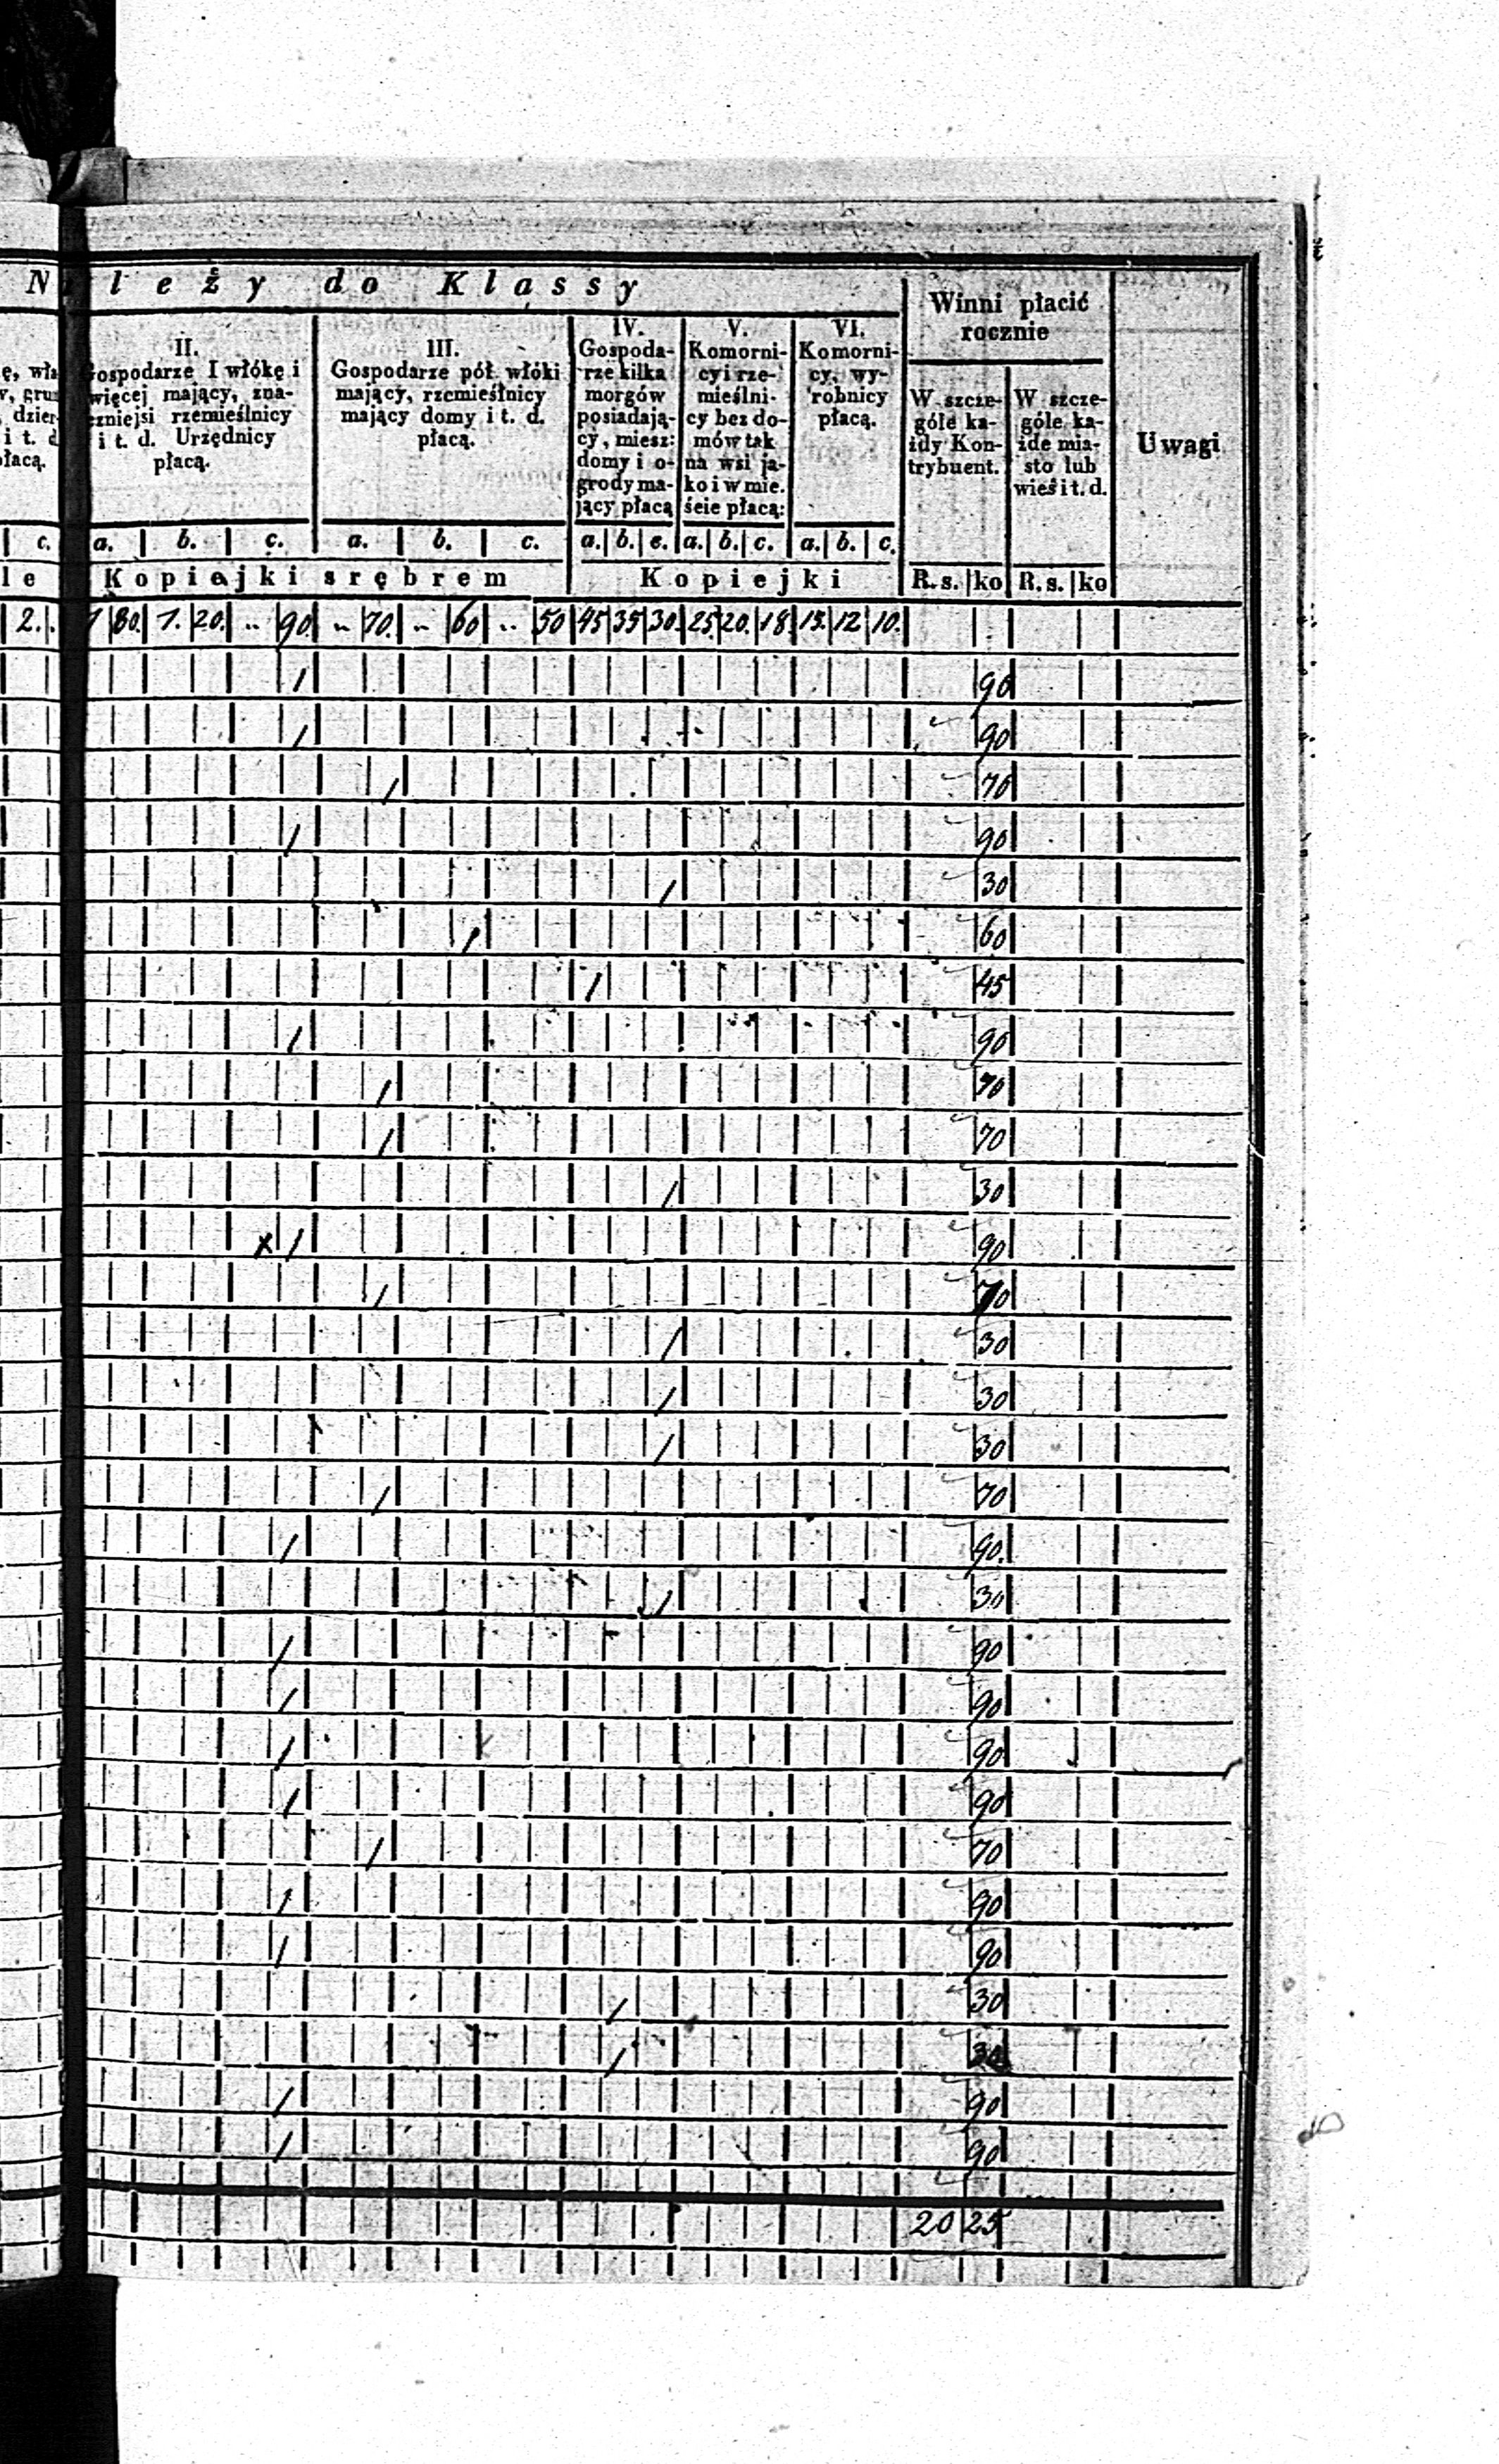 Należy do Klassy
Winni płacić
rocznie
Uwagi
ę, wła
v, grun
, dzier-
i t. d
płacą.
II.
Gospodarze I włókę i
więcej mający, zna-
czniejsi rzemieślnicy
i t. d. Urzędnicy
płacą.
III.
Gospodarze pół włóki
mający, rzemieślnicy
mający domy i t. d.
płacą.
IV.
Gospoda-
rze kilka
morgów
posiadają-
cy, miesz:
domy i o-
grody ma-
jący płacą
V.
Komorni-
cy i rze-
mieślni-
cy bez do-
mów tak
na wsi ja-
ko i w mie.
ście płacą:
VI.
Komorni-
cy, wy-
robnicy
płacą.
W szcze-
góle ka-
żdy Kon-
trybuent.
W szcze-
góle, ka-
żde mia-
sto lub
wieś i t. d.
c. a. b. c. a. b. c. a. b. c. a. b. c. a. b. c.
le Kopiejki srębrem Kopiejki R.s. ko R.s. ko
2. . 1 80. 1. 20. .. 90 .. 70. .. 60 .. 50 45 35 30. 25. 20. 18 15. 12 10.
/ 90
/ 90
/ 70
/ 90
/ 30
/ 60
/ 45
/ 90
/ 70
/ 70
/ 30
x / 90
/ 70
/ 30
/ 30
/ 30
/ 70
/ 90.
/ 30
/ 90
/ 90
/ 90
/ 90
/ 70
/ 90
/ 90
/ 30
/ 30
/ 90
/ 90
20 25